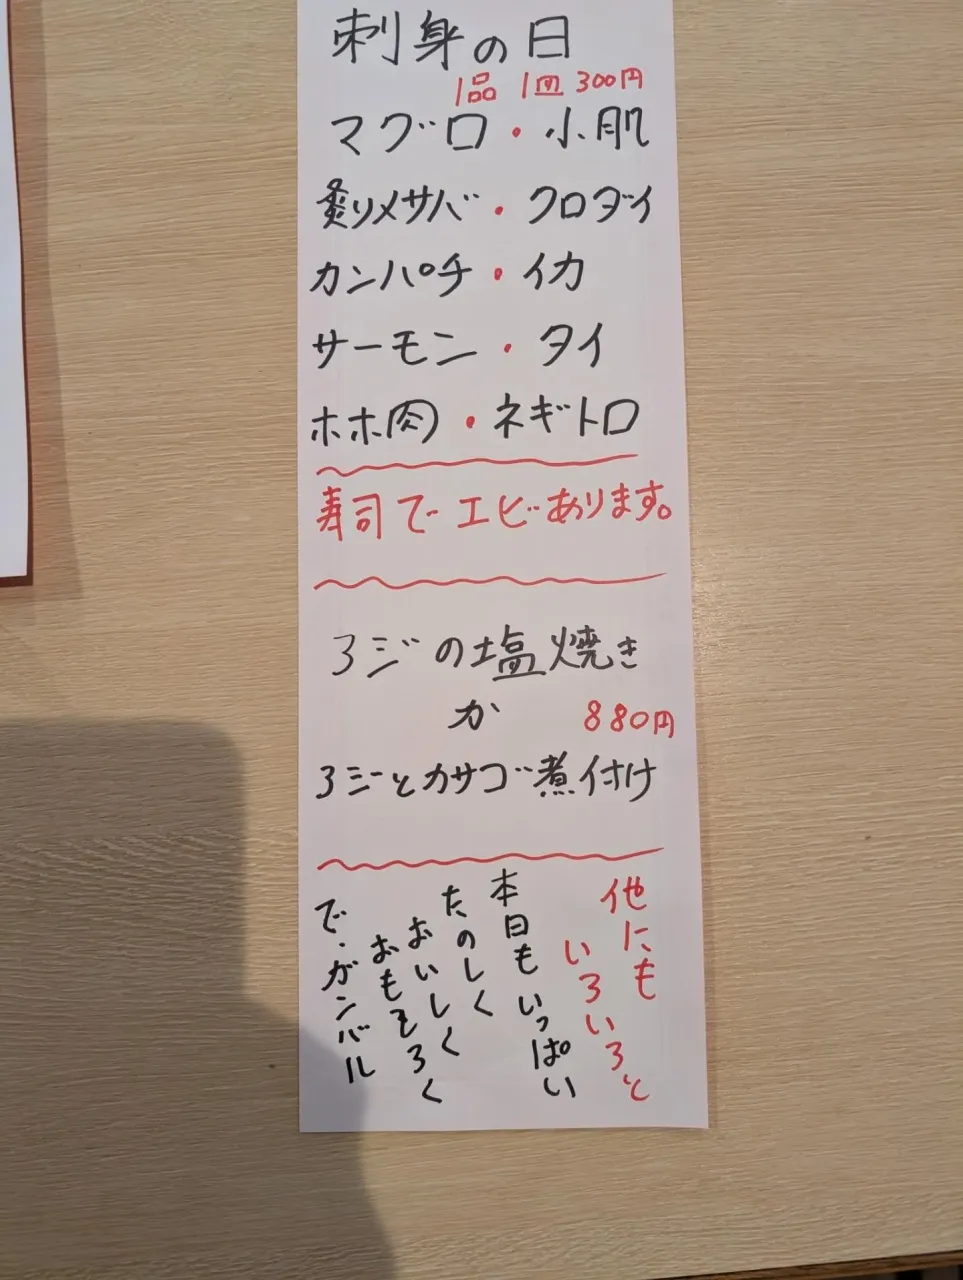 刺身の日
1品 1皿 300円
マグロ・小肌
炙りメサバ・クロダイ
カンパチ・イカ
サーモン・タイ
ホホ肉・ネギトロ
寿司でエビあります。
アジの塩焼き
か 880円
アジとカサゴ煮付け
他にも
いろいろと
本日もいっぱい
たのしく
おいしく
おもそろく
で・ガンバル